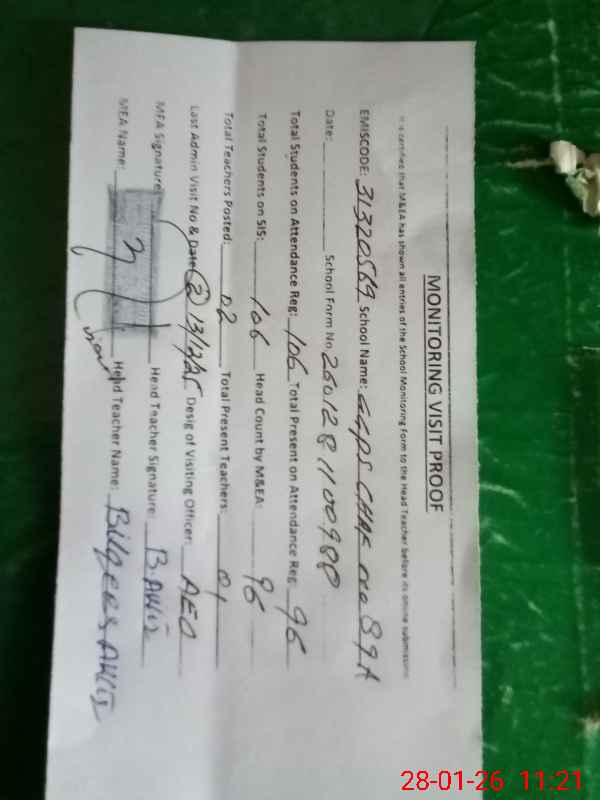 MONITORING VISIT PROOF
It is certified that M&EA has shown all entries of the School Monitoring Form to the Head Teacher before its online submission
EMISCODE: 31320569 School Name: GGPS CHAK No 89A
Date: School Form No 2601281100980
Total Students on Attendance Reg: 106 Total Present on Attendance Reg: 96
Total Students on SIS: 106 Head Count by M&EA: 96
Total Teachers Posted: 02 Total Present Teachers: 01
Last Admin Visit No & Date: (2) 13/12/25 Desig of Visiting Officer: AEO
MEA Signature: Head Teacher Signature: B.AWIS
MEA Name: Head Teacher Name:
28-01-26 11:21